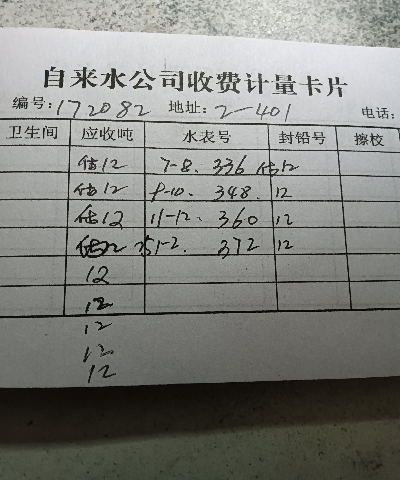 自来水公司收费计量卡片
编号:172082 地址:2-401 电话:
卫生间 应收吨 水表号 封铅号 擦校
估12 7-8. 336 估12
估12 9-10. 348. 12
估12 11-12. 360 12
1-2. 372 12
12
12
12
12
12